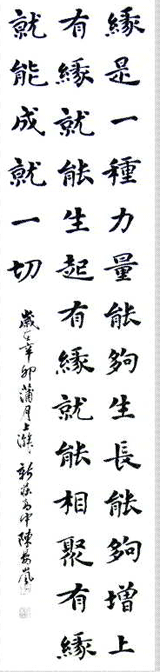 緣是一種力量能夠生長能夠增上
有緣就能生起有緣就能相聚有緣
就能成就一切
歲在辛卯蒲月上澣 新莊高中陳嵐